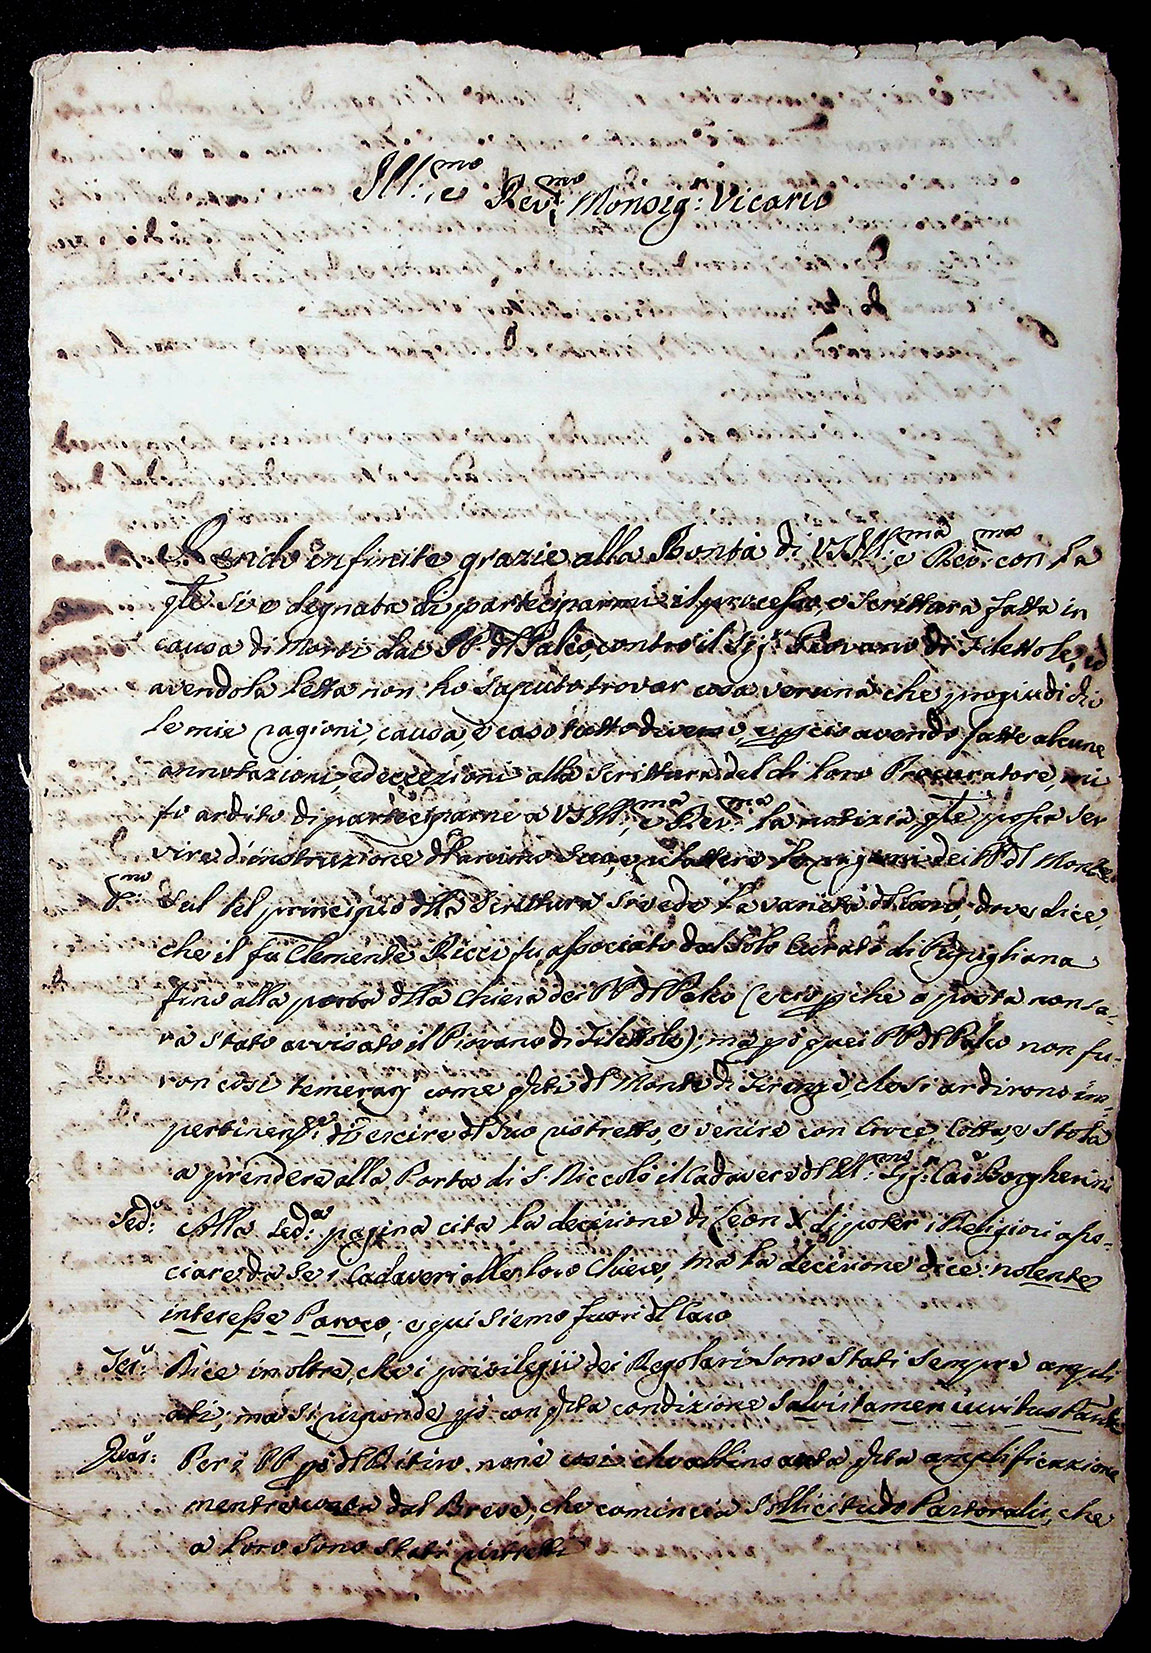 Ill:mo e Rev:mo Monsig:r Vicario
Rendo infinite grazie alla Bontà di VS Ill:ma e Rev:ma con la
qle si è degnata di parteciparmi il processo, o scrittura fatta in
causa di Morti dai PP. dl Palco, contro il Sig:r Piovano di Filettole, e
avendola letta non hò saputo trovar cosa veruna che progiudichi
le mie ragioni, causa, e caso tutto diverso, e perciò avendo fatte alcune
annotazioni, ed eccezioni alla scrittura del di loro Procuratore, mi
fo ardito di parteciparne a VS Ill:ma e Rev:ma la notizia, qle possa ser
vire d'instruzione dl animo suo, e ributtere le ragioni dei PP. dl Monte
P:mo Sul bel principio dlla Scrittura si vede la varietà dl caso, dove dice,
che il fu Clemente Ricci fu associato dal solo Curato di Pupigliana
fino alla porta dlla Chiesa dei PP. dl Palco (e ciò pche a posta non sa-
rà stato avvisato il Piovano di Filettole); mà pò quei PP. dl Palco non fu-
ron così temerarj come qsti dl Monte di Firenze, che si ardirono im-
pertinen: di escire dl suo ristretto, e venire con Croce, Cotta, e Stola
a prendere alla Porta di S. Niccolò il Cadavere dl Ill:mo Sig:r Cav: Borgherini
Sed:o Alla Sed:a pagina cita la decisione di Leon X di poter i Religiosi asso-
ciare da se i Cadaveri alle loro Chiese, ma la decisione dice: nolente
interesse Paroco, e qui siemo fuori dl Caso
Ter:o Dice inoltre, che i privilegii dei Regolari sono stati sempre ampli
ati; ma si risponde pò con qsta condizione salvis tamen iuribus Paro
Quar:o Per i PP. poi dl Ritiro non è così che abbino avuta qsta amplificazione
mentre costa dal Breve, che comincia Sollicitudo Pastoralis, che
a loro sono stati ristretti